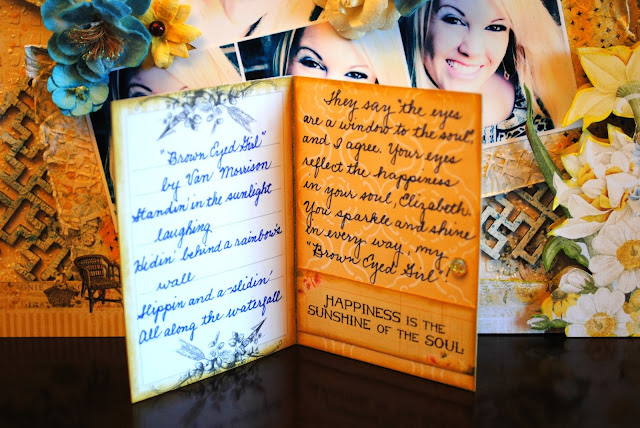 "Brown Eyed Girl"
by Van Morrison
Standin' in the sunlight
laughing
Hidin' behind a rainbow's
wall
Slippin and a-slidin'
All along the waterfall
They say "the eyes
are a window to the soul",
and I agree. Your eyes
reflect the happiness
in your soul, Elizabeth.
You sparkle and shine
in every way, my
"Brown Eyed Girl"!
HAPPINESS IS THE
SUNSHINE OF THE SOUL